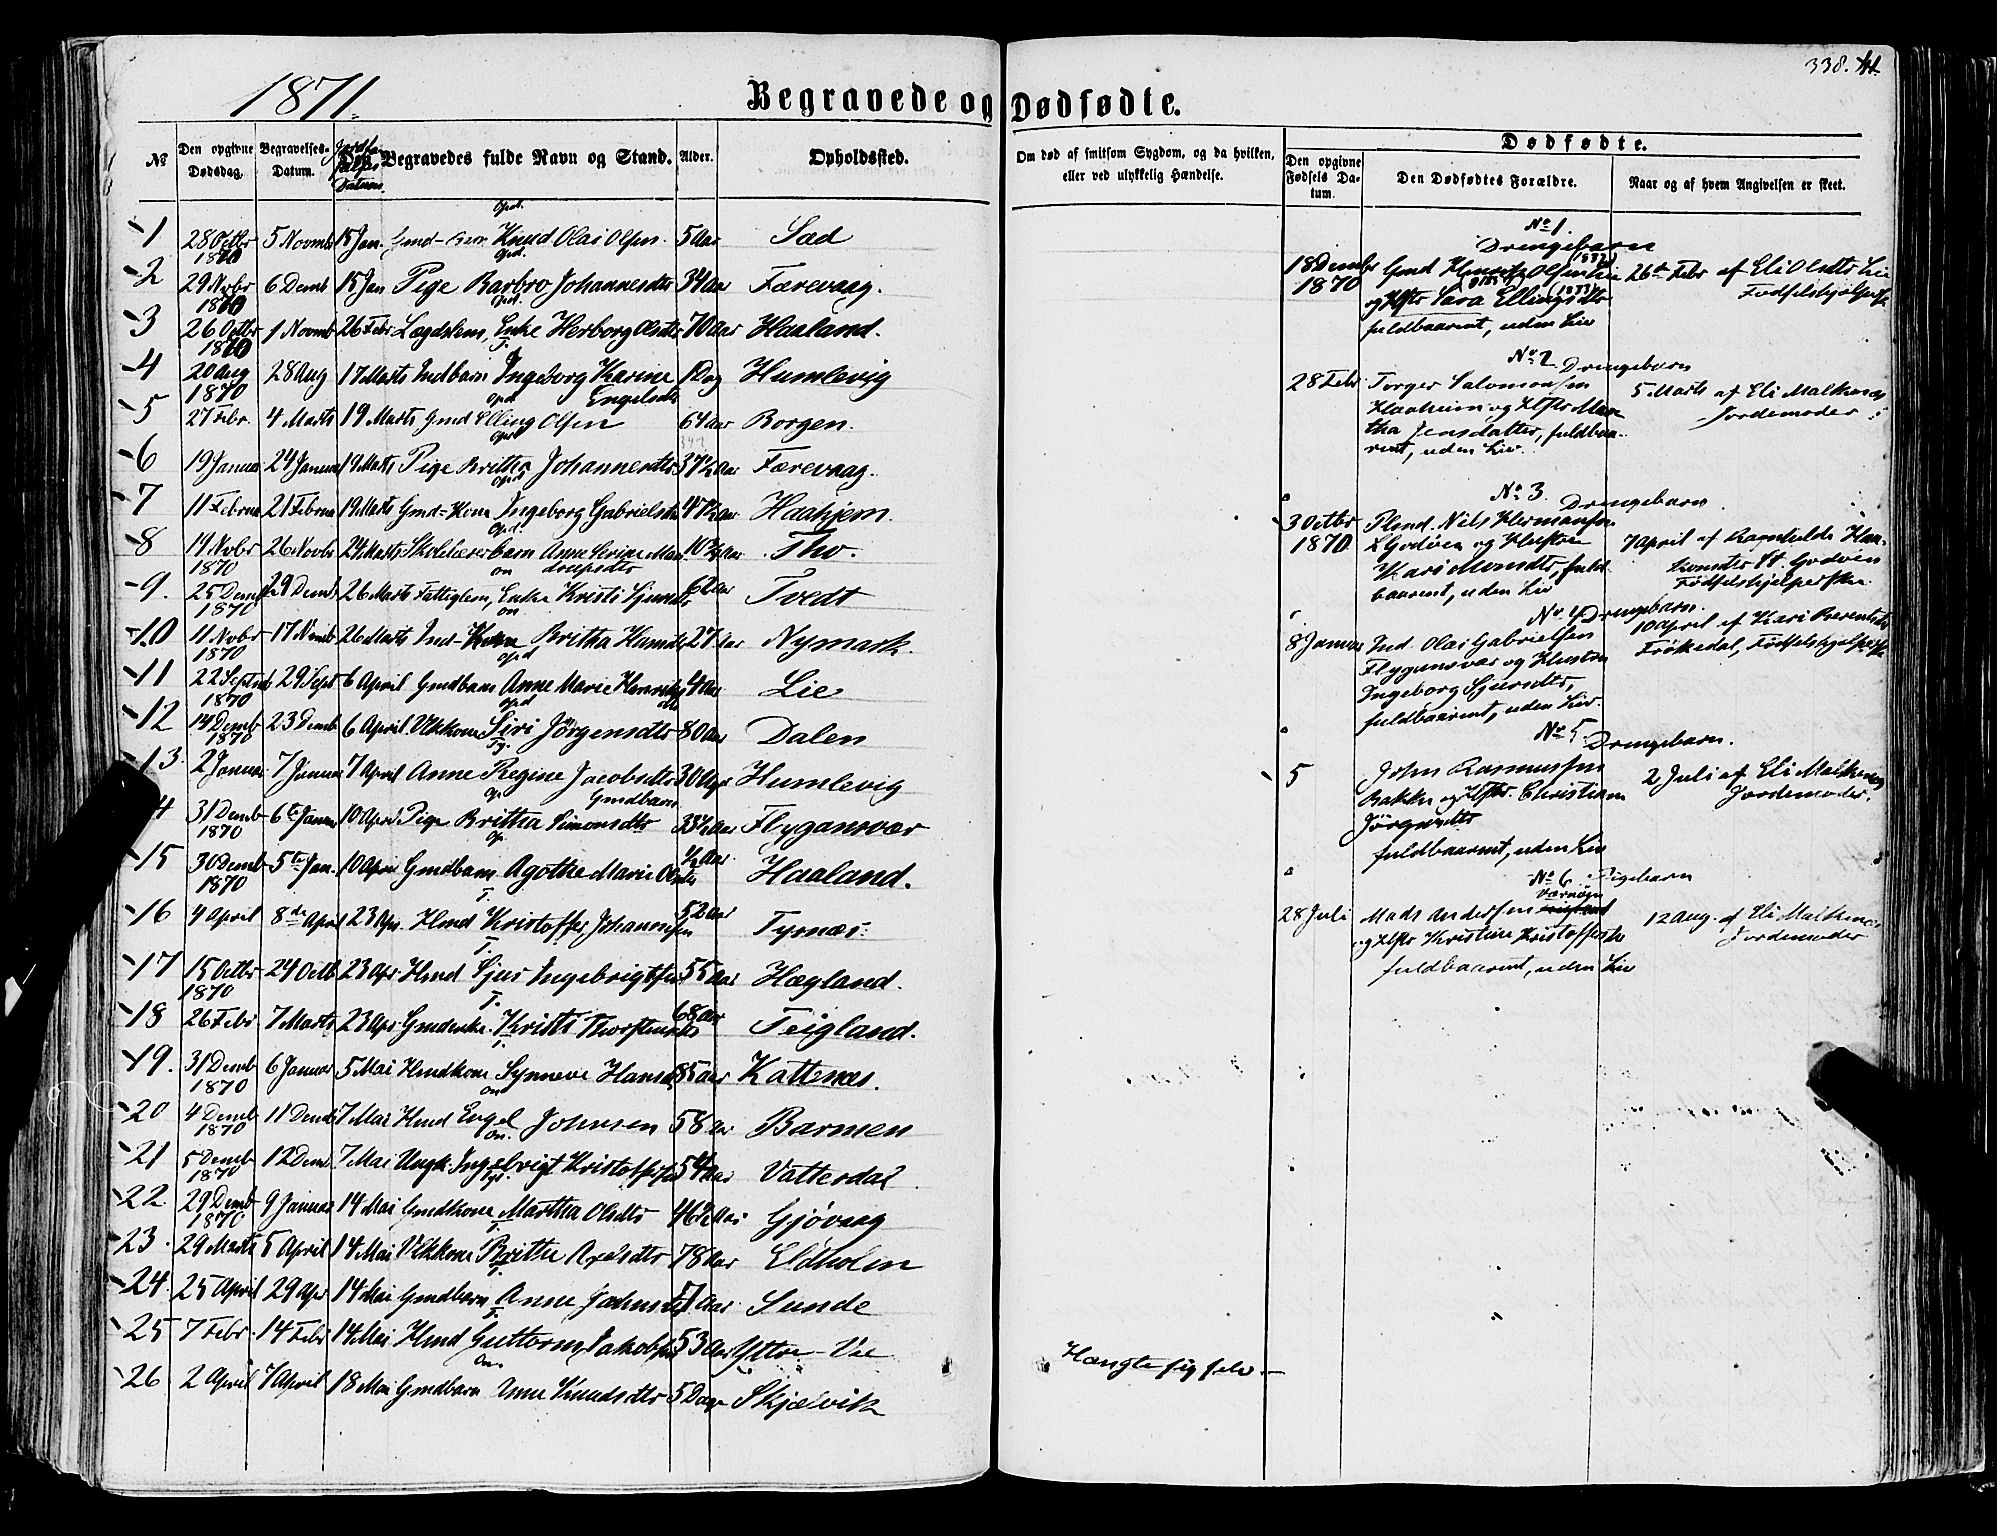 338. 41.
1871.
Begravede og Dødfødte.
№
Den opgivne Dødsdag.
Begravelses-Datum.
Jordfæstelses Datum
Den Begravedes fulde Navn og Stand.
Alder.
Opholdssted.
Om død af smitsom Sygdom, og da hvilken, eller ved ulykkelig Hændelse.
Dødfødte.
Den opgivne Fødsels Datum.
Den Dødfødtes Forældre.
Naar og af hvem Angivelsen er skeet.
1 28 Octbr 1870 5 Novmb 15 Jan. Gmd- Knud Olai Olsen 5 Aar Sæd
2 29 Novbr 1870 6 Demb 15 Jan Pige Barbro Johannesdtr 34 Aar Færevaag.
3 26 Octbr 1870 1 Novmb 26 Febr Lægdslem, Enke Herborg Olsdtr 70 Aar Haaland.
4 20 Aug 1870 28 Aug 17 Marts Indbarn Ingeborg Karine Engelsdtr 1 Dag Humlevig
5 27 Febr. 4 Marts 19 Marts Gmd Elling Olsen 64 Aar Borgen.
6 19 Januar 24 Januar 19 Marts Pige Britha Johannesdtr 37½ Aar Færevaag.
7 11 Februar 21 Februar 19 Marts Gmd=Kone Ingeborg Gabrielsdtr 47½ Aar Haahjem.
8 19 Novbr 1870 26 Novbr 24 Marts Skolelærerbarn Anne Serine 10 Aar Tho.
9. 25 Demb 1870 29 Demb 26 Marts Fattiglem, Enke Kristi Sjursdtr 62 Aar Tvedt
10 11 Novbr 1870 17 Novbr 26 Marts Ind-Kone Britha Hansdtr 27 Aar Nymark.
11 22 Septbr 1870 29 Sept 6 April Gmdbarn Anne Marie Henriksdtr 4 Aar Lie
12 14 Demb 1870 23 Demb 6 April Vilkkone Siri Jörgensdtr 80 Aar Dalen
13. 2 Januar 7 Januar 7 April Anne Regine Jacobsdtr Gmdbarn 30 Dage Humlevig
14 31 Demb 1870 6te Januar 10 April Pige Britha Simonsdtr 33½ Aar Flygansvær
15 30 Demb 1870 5te Jan. 10 April Gmdbarn Agothe Marie Olsdtr ½ Aar Haaland.
16 4 April 8de April 23 Apr. Hmd Kristoffer Johannessen 52 Aar Tysnæs.
17 15 Octbr 1870 24 Octb 23 Apr. Hmd Sjur Ingebrigtsen 55 Aar Hægland.
18 26 Febr 7 Marts 23 Apr. Gmdenke. Kristi Thorstensdtr 68 Aar Teigland.
19. 31 Demb 1870 6 Januar 5 Mai Hmdkone Synneve Hansdtr 85 Aar Kattenæs.
20 4 Demb 1870 11 Demb 7 Mai Hmd Engel Johnsen 58 Aar Barmen
21 5 Demb 1870 12 Demb 7 Mai Ungk. Ingebrigt Kristoffersen 54 Aar Vatterdal
22 29 Demb 1870 9 Januar 14 Mai Gmdkone Martha Olsdtr 46½ Aar Gjövaag
23. 29 Marts 5 April 14 Mai Vilkkone Brithe Axelsdtr 78 Aar Eldholm
24. 25 April 29 Apr 14 Mai Gmdbarn Anne Aar Sunde
25 7 Febr. 14 Febr 14 Mai Hmd Guttorm Jakobsen 53 Aar Yttre- Væ
Hængte sig selv.
26 2 April 7 April 18 Mai Gmdbarn Anne Knudsdtr 5 Dage Skjælvik
No 1. Drengebarn
18 Dember 1870
Gmd Olsen Lie
og Hustr Sara Ellingsdtr
fuldbaarent, uden Liv
26de Febr af Eli Olsdtr Lie
Fødselshjelperske
No 2 Drengebarn
28 Febr. Torger Salomonsen
Haaheim og Hustr Martha
Jensdatter, fuldbaarent,
uden Liv.
5 Marts af Eli Malkenes
Jordemoder
No 3. Drengebarn
3 Octbr 1870 Nils Hermansen
L Godöen og Hustru
Kari Monsdtr, fuldbaarent,
uden Liv
7 April af Ragnhilde
Godöen
Fødselshjelperske.
No 4 Drengebarn.
8 Januar Ind. Olai Gabrielsen
Flygansvær og Hustru
Ingeborg Sjursdtr,
fuldbaarent, uden Liv.
10 April af Kari Berentsdtr
Frökedal, Fødselshjelperske
No 5. Drengebarn.
5 John Rasmussen
Bakke og Hustr. Christiane
Jörgensdtr
fuldbaarent, uden Liv
2 Juli af Eli Malkenes
Jordemoder.
No 6 Pigebarn
28 Juli Mads Andersen Værnöen
og Hustr Kristine Kristoffersdtr
fuldbaarent, uden Liv
12 Aug. af Eli Malkenes
Jordemoder